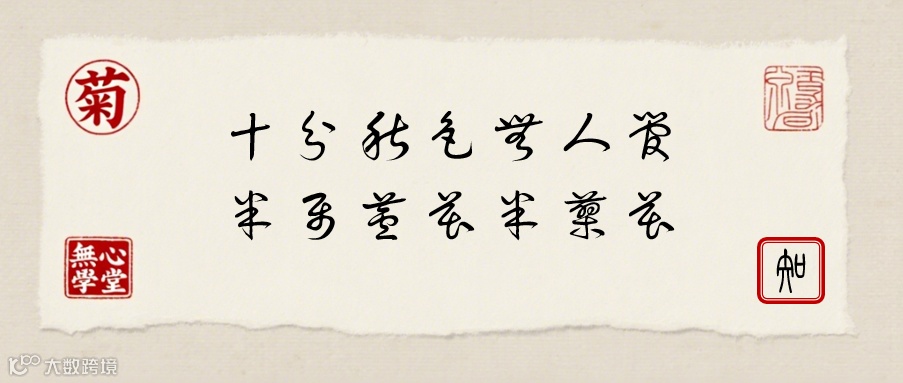 菊
十分秋色無人管
半屬蘆花半蓼花
無心
學堂
知
大数跨境